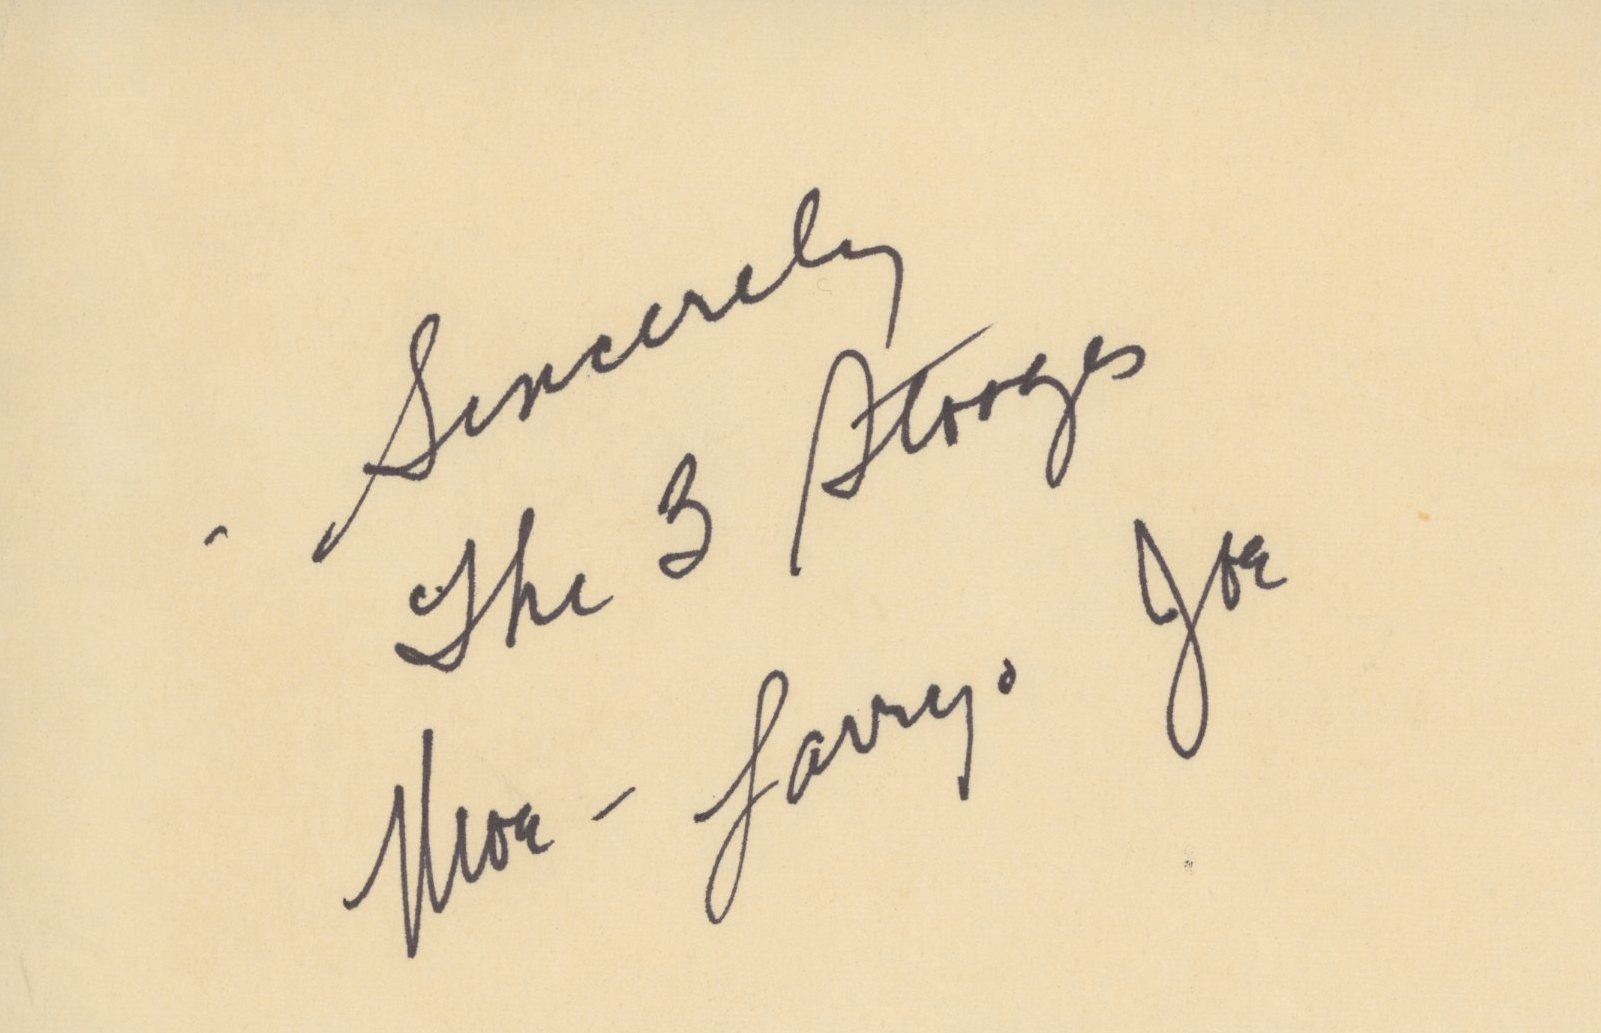 Sincerely
The 3 Stooges
Moe - Larry. Joe